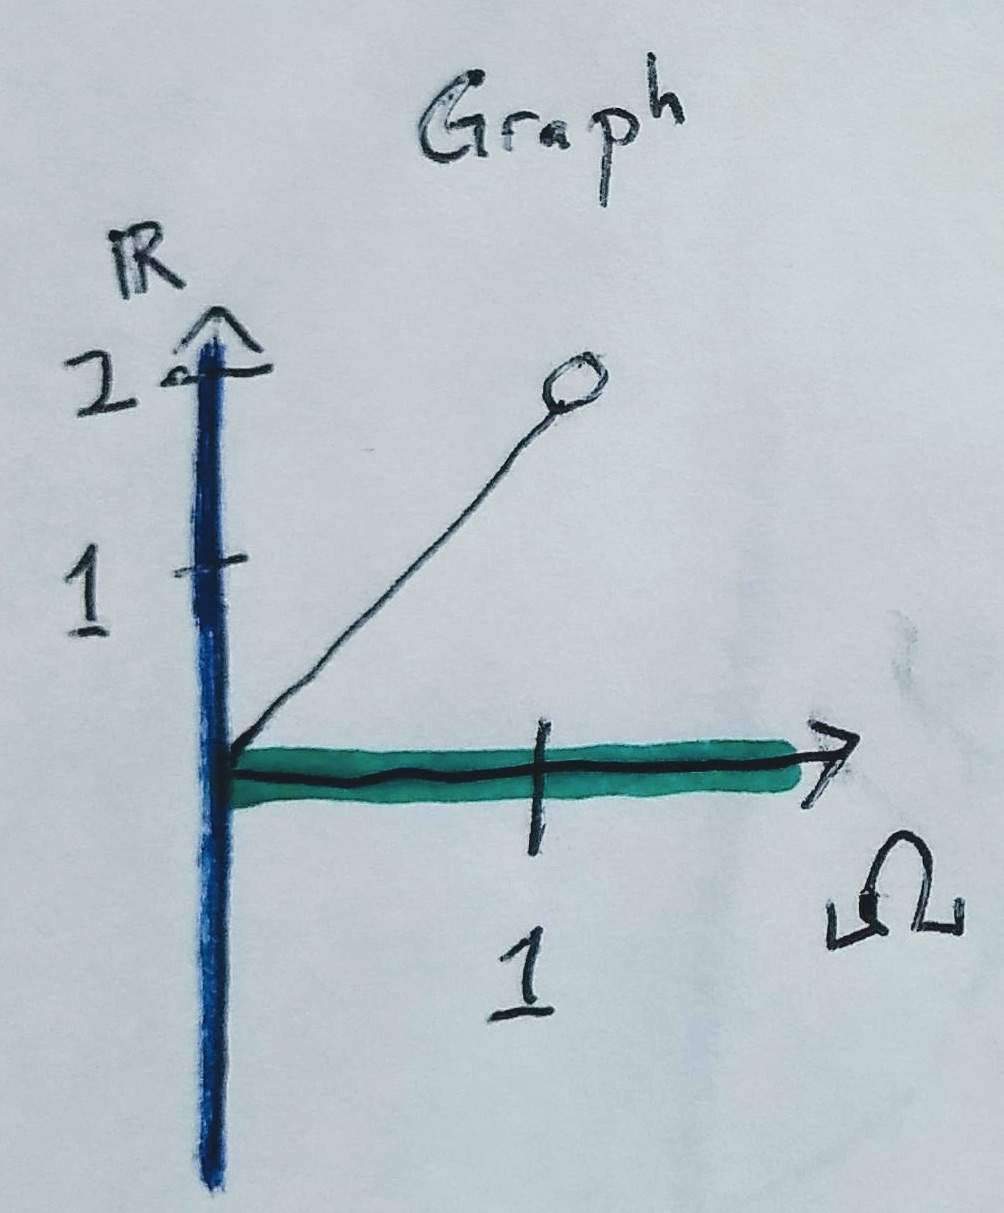 Graph
ℝ
2
1
1
Ω